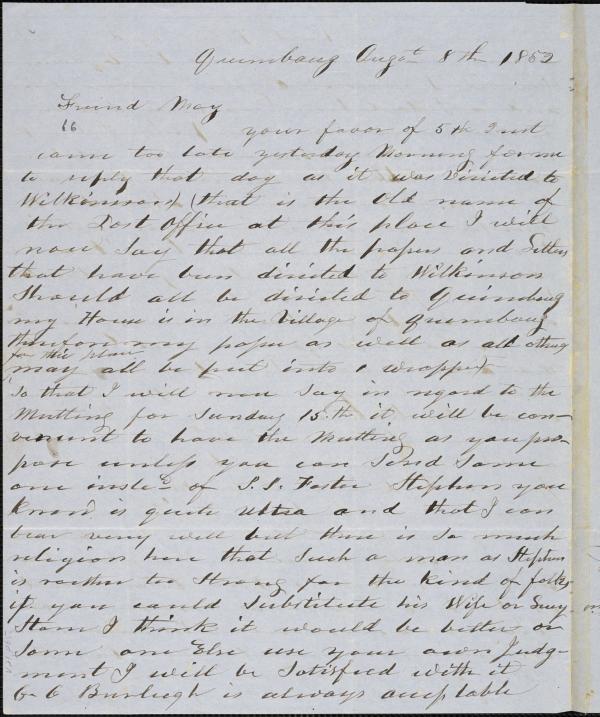 Quinebaug Augst 8th 1852
Friend May
66
your favor of 5th Inst
came too late yesterday Morning for me
to reply that day as it was Directed to
Wilkinson (that is the Old name of
the Post Office at this place I will
now Say that all the papers and Letters
that have been directed to Wilkinson
Should all be directed to Quinebaug
my House is in the Village of Quinebaug
therefor my paper as well as all others
for this place
may all be put into 1 wrapper
So that I will now Say in regard to the
Meetting for Sunday 15th it will be con-
venient to have the Meetting as you pro-
pose unless you can Send Some
one insted of S.S. Foster Stephen you
Know is quite ultra and that I can
bear very well but there is So much
religion here that Such a man as Stephen
is rather too Strong for the kind of folks
if you could Substitute his Wife or Lucy
Stone I think it would be better or
Some one Else use your own Judg-
ment I will be Satisfied with it
C C Burleigh is always acceptable